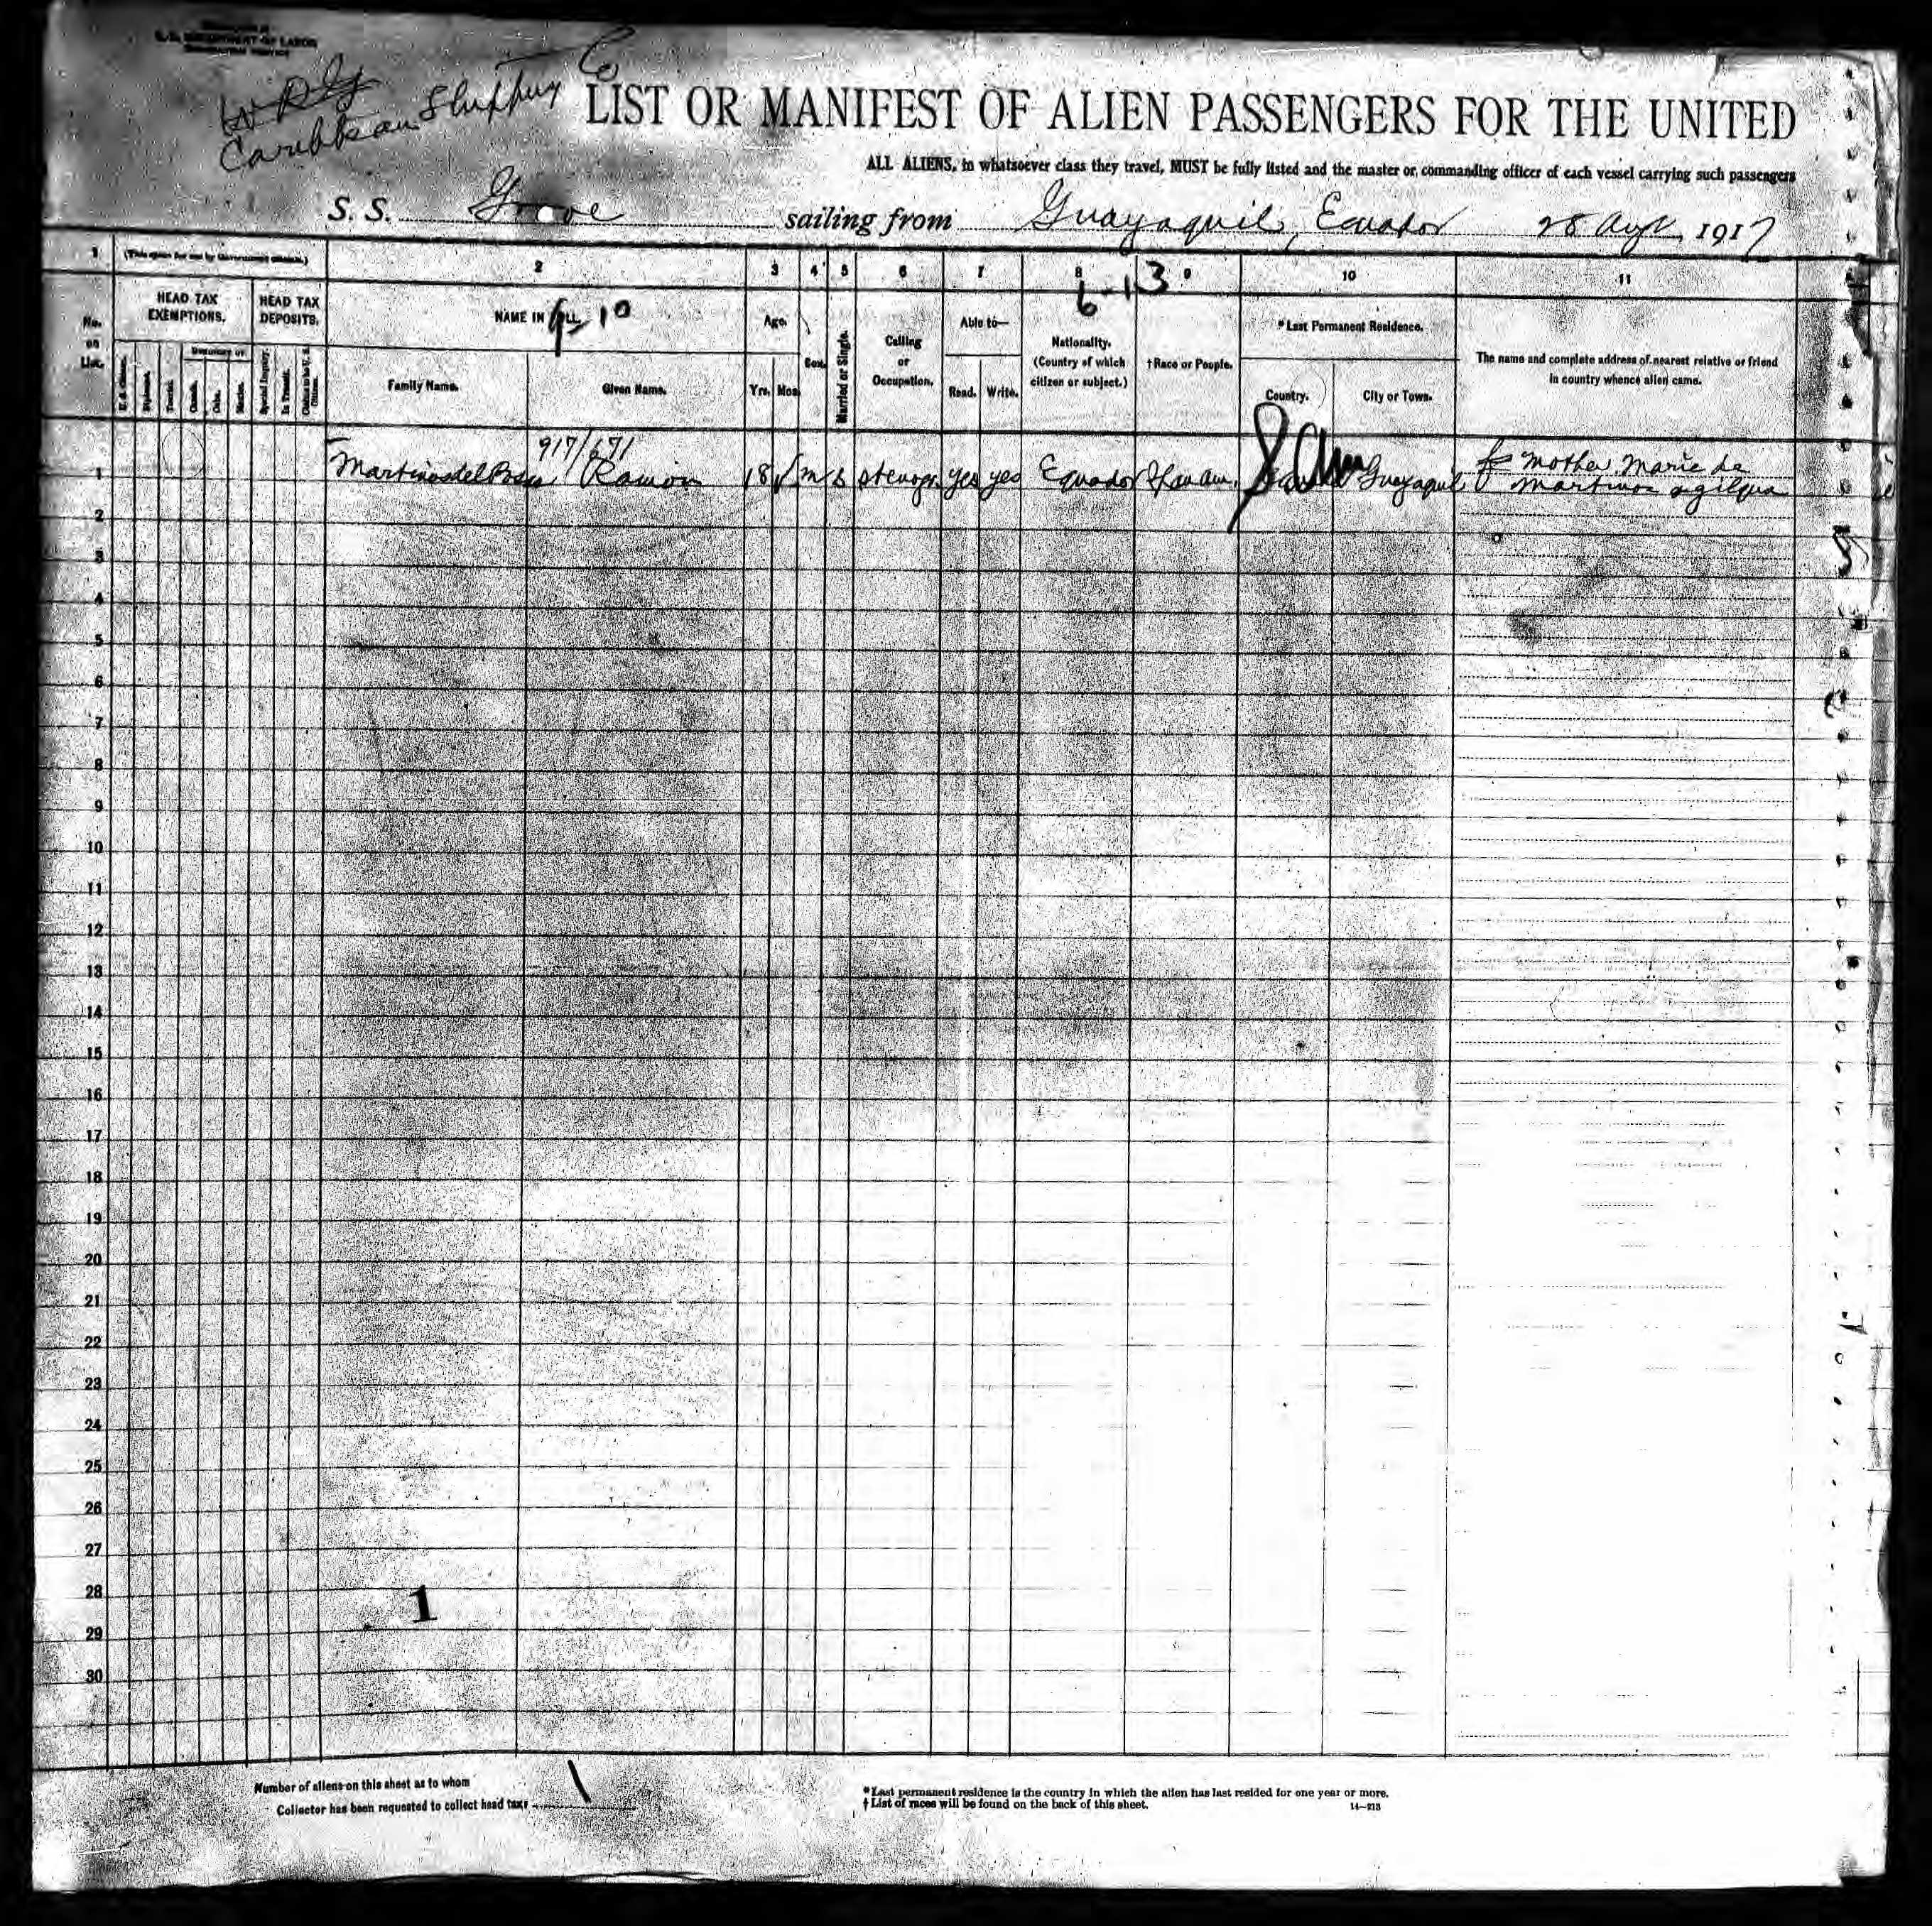 U.S. DEPARTMENT OF LABOR
IMMIGRATION SERVICE
Caribbean Shipping Co
LIST OR MANIFEST OF ALIEN PASSENGERS FOR THE UNITED
ALL ALIENS, in whatsoever class they travel, MUST be fully listed and the master or commanding officer of each vessel carrying such passengers
S. S. sailing from Guayaquil, Ecuador 1917
1 (This space for use by Government officials.) 2 3 4 5 6 7 8 9 10 11
6-13
No. on List.
HEAD TAX EXEMPTIONS.
HEAD TAX DEPOSITS.
NAME IN FULL
10
Age.
Sex.
Married or Single.
Calling or Occupation.
Able to—
Nationality. (Country of which citizen or subject.)
†Race or People.
*Last Permanent Residence.
The name and complete address of nearest relative or friend in country whence alien came.
U. S. Citizens.
Diplomat.
Transit.
Canada.
Cuba.
Mexico.
Special Inquiry.
In Transit.
Family Name.
Given Name.
Yrs.
Mos.
Read.
Write.
Country.
City or Town.
917/671
1 Ramon 18 m s stenogr yes yes Ecuador Guayaquil mother Marie de
2
3
4
5
6
7
8
9
10
11
12
13
14
15
16
17
18
19
20
21
22
23
24
25
26
27
28
1
29
30
Number of aliens on this sheet as to whom
Collector has been requested to collect head tax: 1
*Last permanent residence is the country in which the alien has last resided for one year or more.
†List of races will be found on the back of this sheet. 14—213